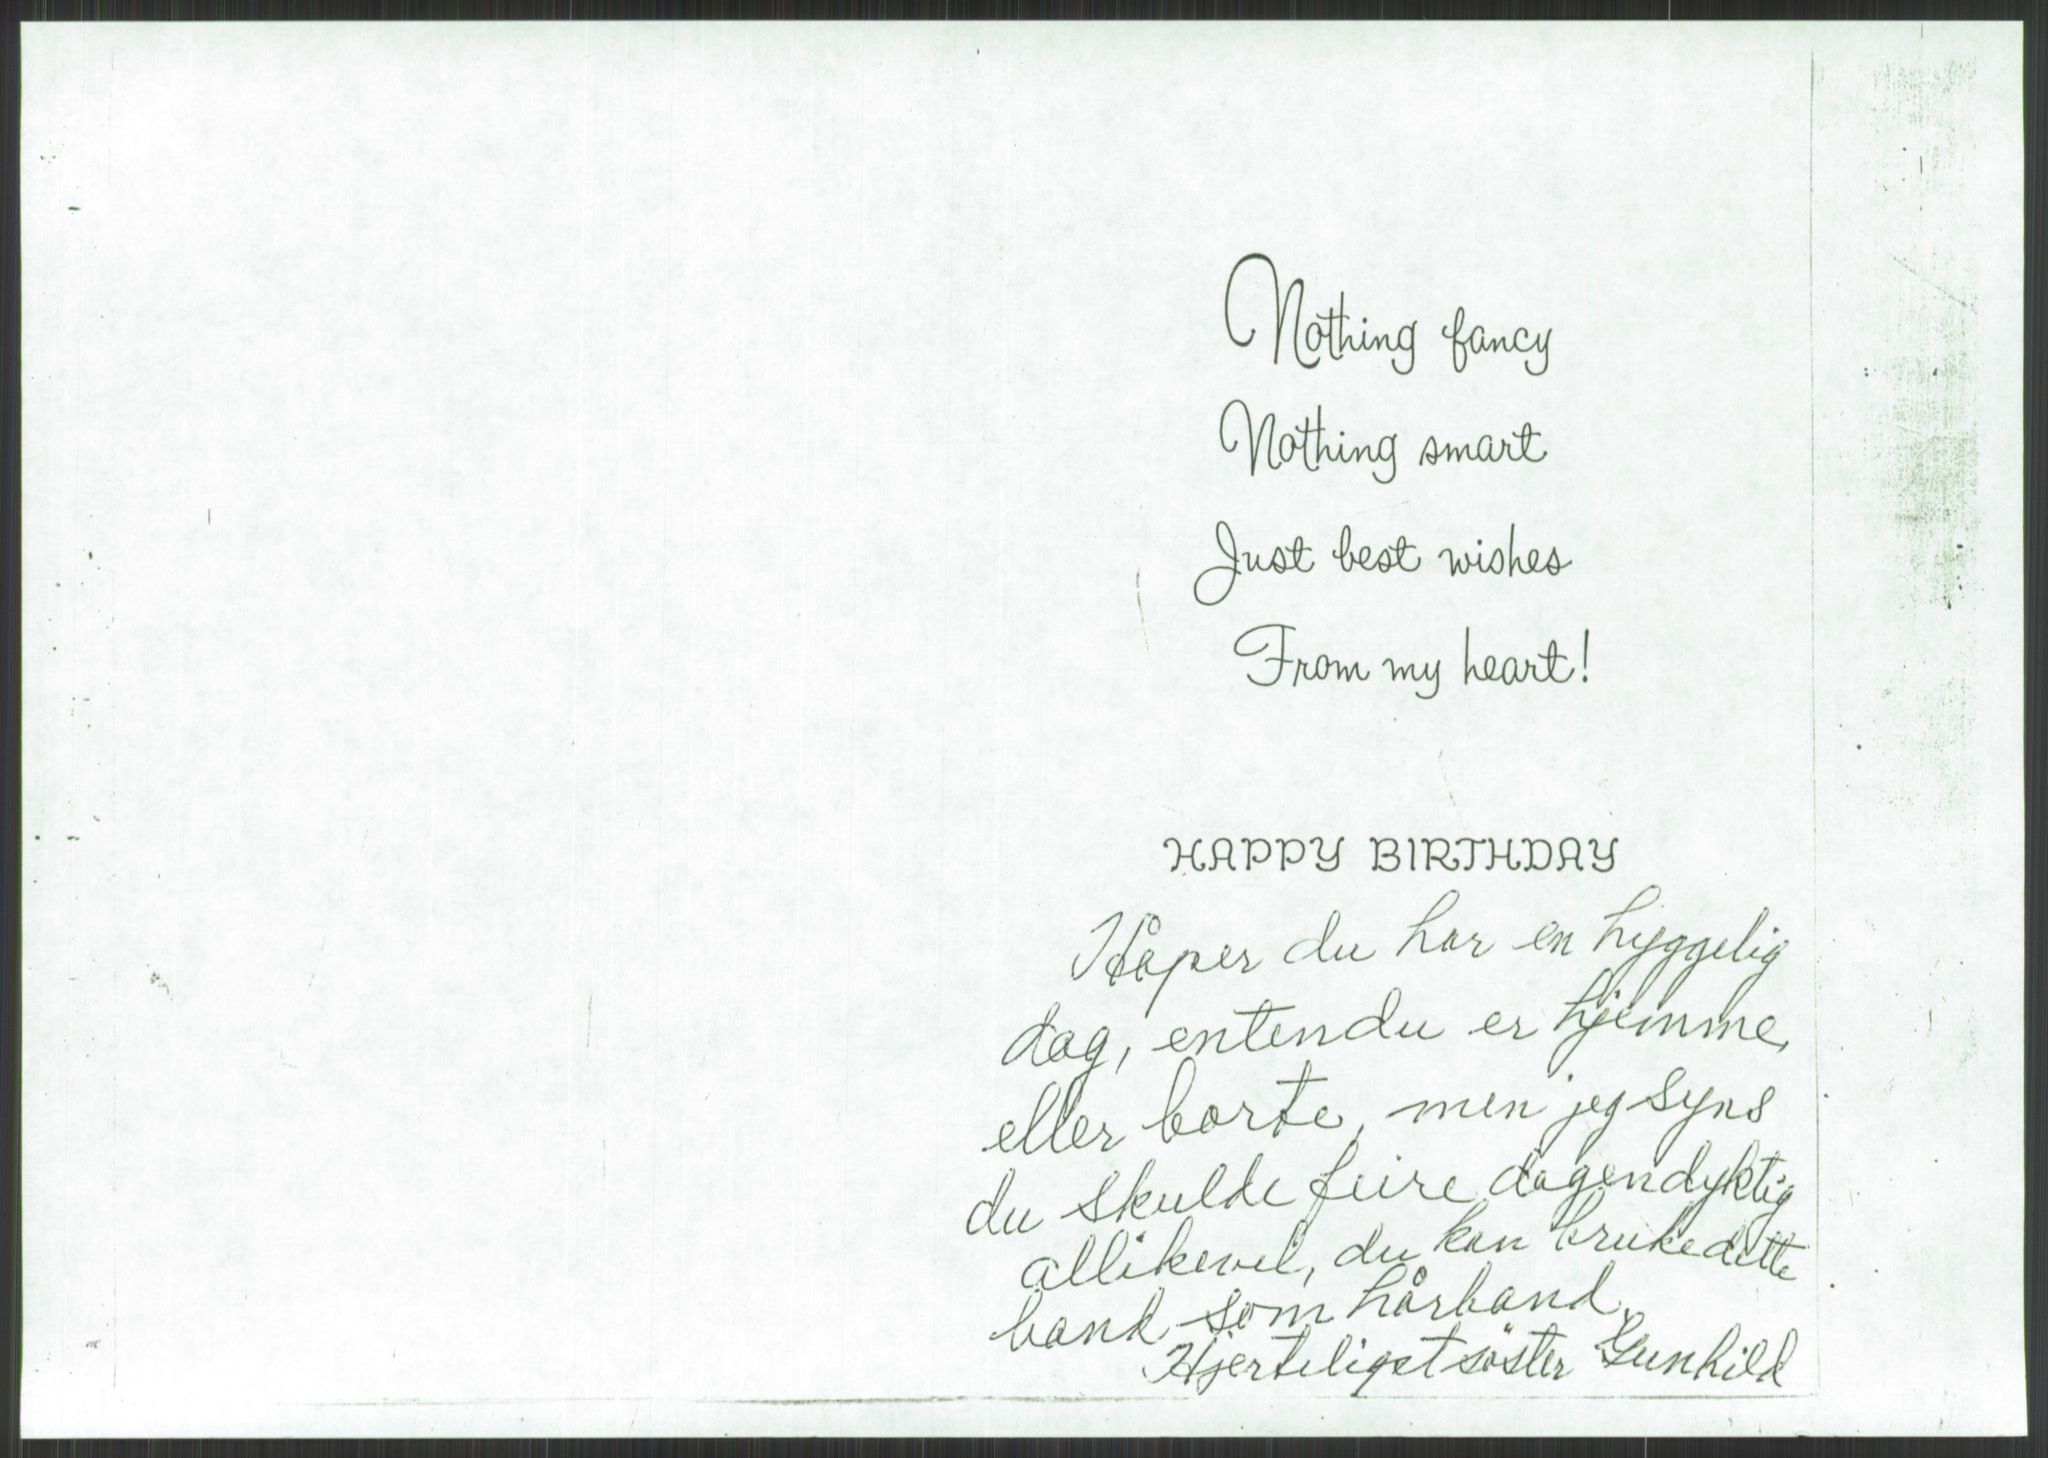 Nothing fancy
Nothing smart
Just best wishes
From my heart!
HAPPY BIRTHDAY
Håper du har en hyggelig
dag, enten du er hjemme,
eller borte, men jeg syns
du skulde feire dagen dyktig
allikevel, du kan bruke dette
band som hårband.
Hjerteligst söster Gunhild